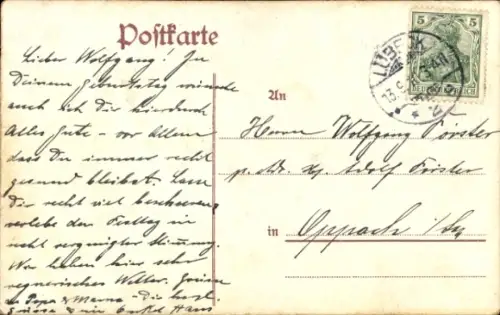 Postkarte
Lieber Wolfgang! Zu
Deinem Geburtstag wünsche
auch ich Dir hierdurch
Alles Gute - vor Allem
dass Du immer recht
gesund bleibst. Lass
Dir recht viel bescheeren,
verlebe den Festtag in
recht vergnügter Stimmung.
Wir haben hier sehr
regnerisches Wetter. Grüsse
Papa & Mama - Dir herzl.
Grüsse Onkel Hans
5 5
DEUTSCHES REICH
LÜBECK
An
Herrn Wolfgang Förster
p. Adr. Adolf Förster
in Oppach i/Sa